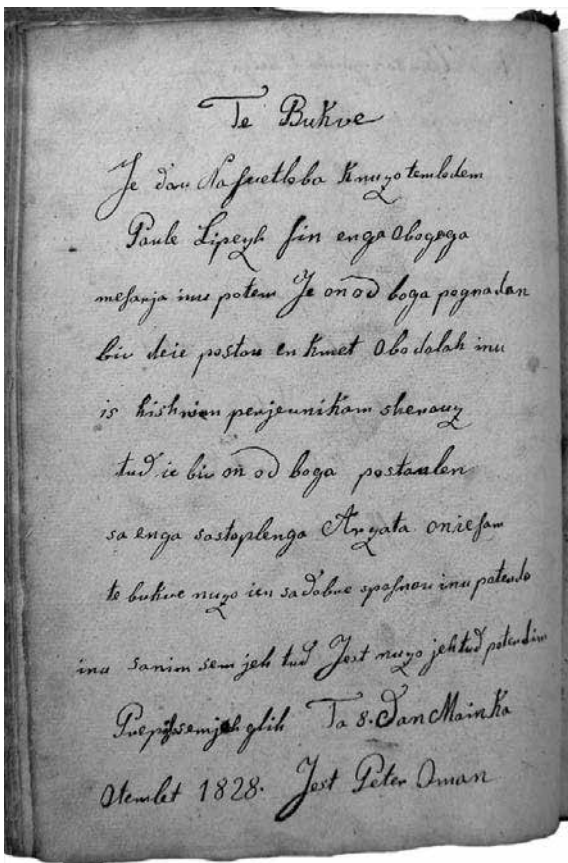 Te Bukve
Je dau Na svetloba Knuzo tem lodem
Paule Lipezh sin enga Obogega
mesarja inu potem Je on od boga pognadan
biu deie postau en Kmet Obodalah inu
is hishnim perjeunikam shenouz
tud ie biu on od boga postaulen
sa enga sastoplenga Arzata on ie sam
te bukve nuzo ien sa dobre sposnou inu poterdo
inu sanim sem jeh tud Jest nuzo jeh tud poterdim
Prepisu sem jeh glih Ta 8. Dan Mainka
Otemlet 1828. Jest Peter Oman